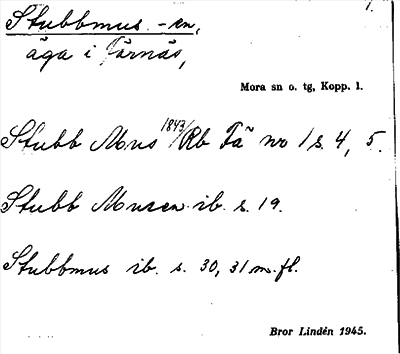 Stubbmus. -en, 1.
äga i Färnäs,
Mora sn o. tg, Kopp. l.
Stubb Mus 1843/Rb Fä no 1 s. 4, 5.
Stubb Musen ib. s. 19.
Stubbmus ib. s. 30, 31 m.fl.
Bror Lindén 1945.